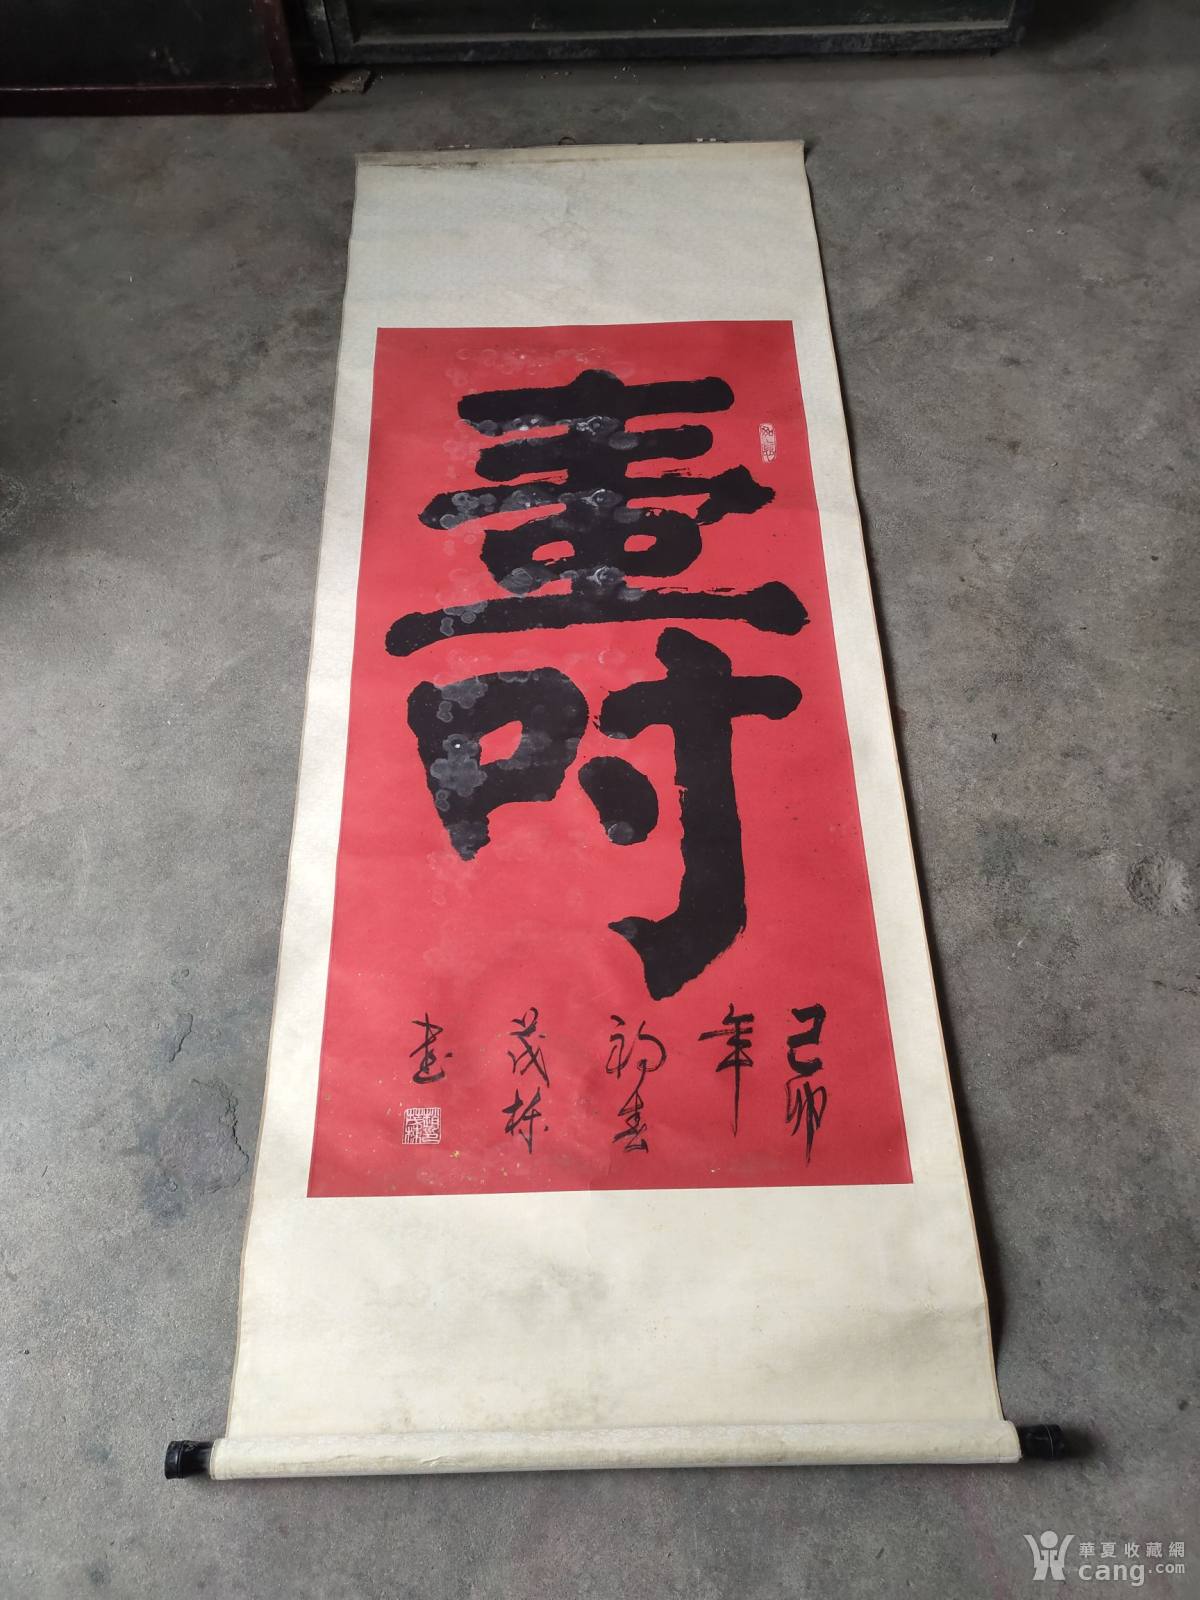 壽
己卯
年
初春
茂栋
书
華夏收藏網
cang.com